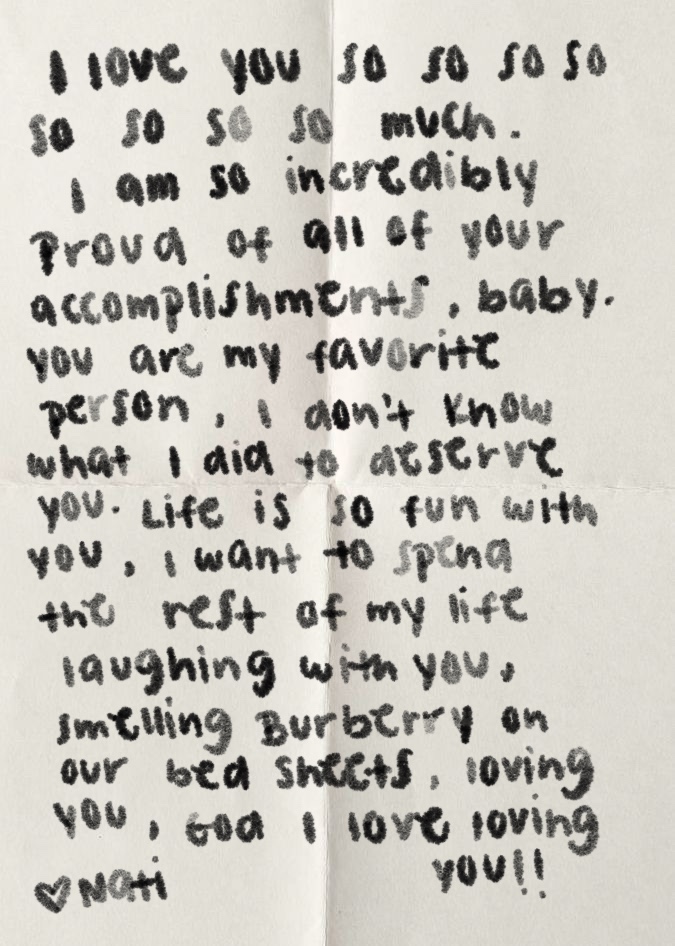 I love you so so so so
so so so so much.
I am so incredibly
proud of all of your
accomplishments, baby.
you are my favorite
person, I don't know
what I did to deserve
you. Life is so fun with
you, I want to spend
the rest of my life
laughing with you,
smelling Burberry on
our bed sheets, loving
you, God I love loving
you!!
♡Nati